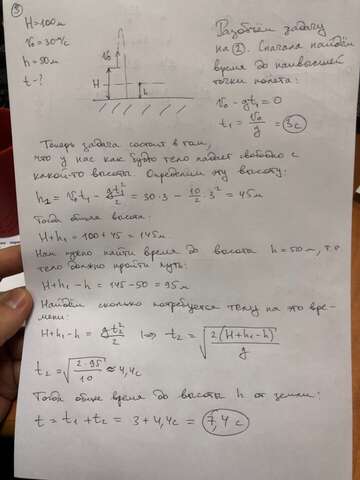 ③
H=100м
v₀=30м/с
h=50м
t-?
v₀
H
h
Разобьём задачу
на 2. Сначала найдём
время до наивысшей
точки полета:
v₀ - gt₁ = 0
t₁ = v₀/g = 3с
Теперь задача состоит в том,
что у нас как будто тело падает свободно с
какой-то высоты. Определим эту высоту:
h₁ = v₀t₁ - gt₁²/2 = 30·3 - 10/2·3² = 45м
Тогда общая высота:
H+h₁ = 100+45 = 145м
Нам нужно найти время до высоты h = 50м, т.е
тело должно пройти путь:
H+h₁-h = 145-50 = 95м
Найдём сколько потребуется телу на это вре-
мени:
H+h₁-h = gt₂²/2 ⇒ t₂ = √(2(H+h₁-h)/g)
t₂ = √(2·95/10) ≈ 4,4с
Тогда общее время до высоты h от земли:
t = t₁ + t₂ = 3 + 4,4с = 7,4с